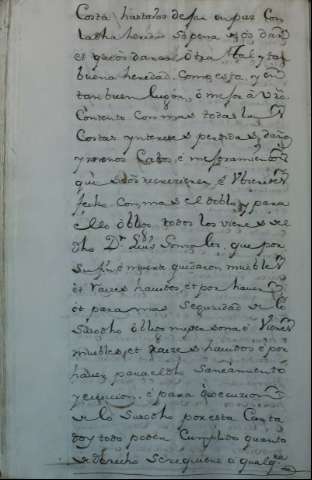 Costa hastabos defar en paz Con
la dha heredad so pena
et que os dare otra tal y tan
buena heredad. Como esta y en
tan buen lugar, o mejor a vro.
Contento Con mas todas las
Costas yntereses perdidas, daños
y menos Cabos, e mejoramientos
que
fecho Con mas el doblo y para
ello obligo todos los vienes del
dho Dn Luis Gonzales, que por
su fin e muerte quedaron muebles
et raices havidos, et por haver
et para mas Seguridad de lo
Susodho obligo mi persona e Vienes
muebles, et raizes havidos e por
haver para el dho Saneamiento
y evicion. e para la execucion
de lo Susodho por esta Carta
doy todo poder Cumplido quanto
de derecho Se requiere a qualqra